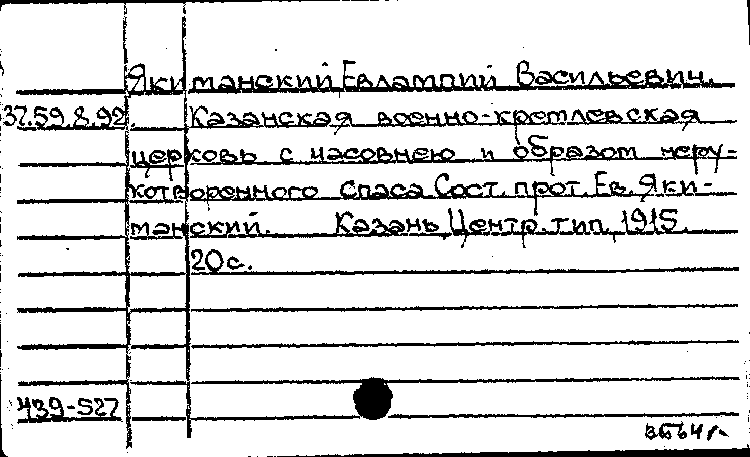 Якиманский Евлампий Васильевич.
37.59.8.92. Казанская военно-кремлевская
церковь с часовнею и образом неру-
котворенного спаса Сост. прот. Ев. Яки-
манский. Казань, Центр. тип., 1915.
20с.
439-527